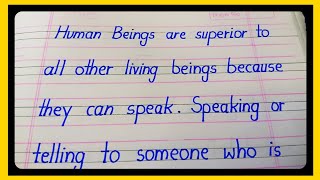 Human Beings are superior to
all other living beings because
they can speak. Speaking or
telling to someone who is